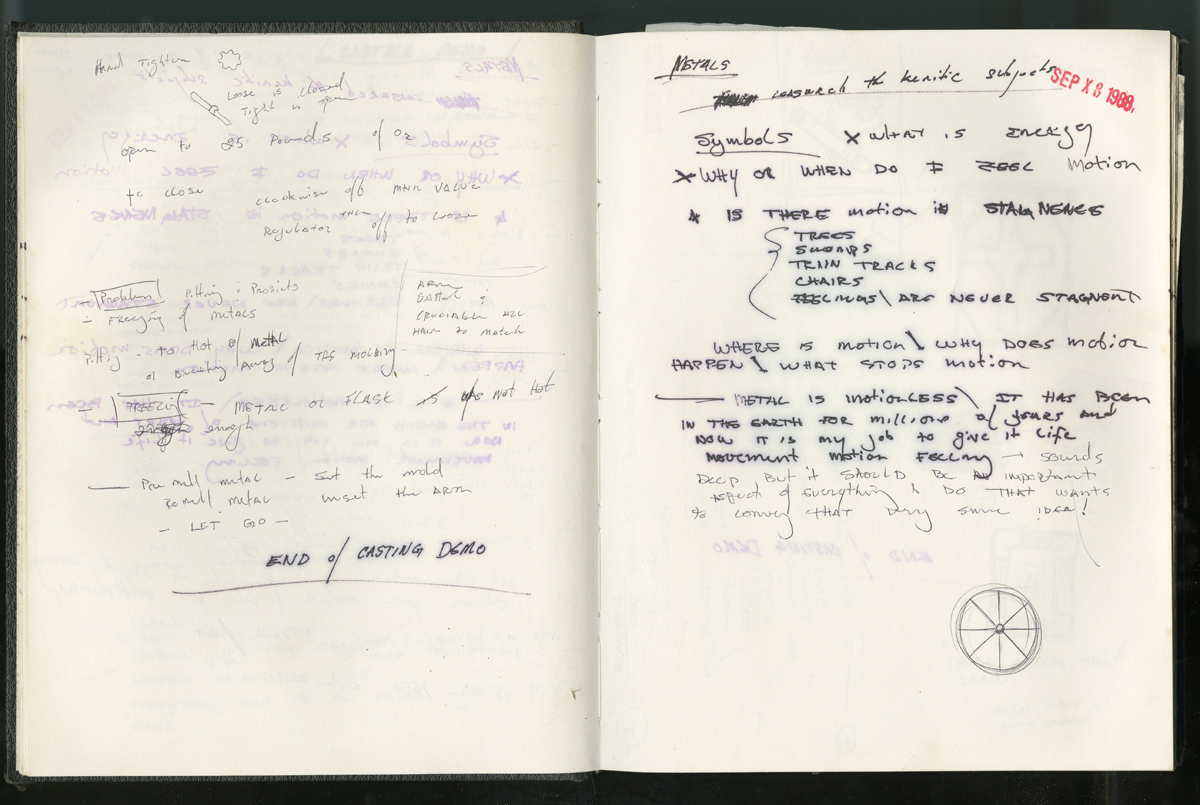 Hand Tighten
Loose is closed
Tight is open
open to 25 Pounds of O2
to close clockwise off MNR VALUE
Regulator off to Loose
Problem Pitting : Prosists
- Freezing of METALS
Pitting - to Hot of METAL
or Breaking Away of THE MOLDING
ARM
SATTEL &
CRUCIABLE
HAVE TO MATCH
- FREEZING - METAL or FLASK is was not Hot
enough
— Pre melt metal - Set the mold
Remelt METAL unset the ARM
- LET GO -
END of CASTING DEMO
METALS
reasearch th kenitic subjects
SEP X 8 1988.
Symbols X WHAT IS ENERGY
X WHY OR WHEN DO I FEEL MOTION
* IS THERE motion in STALNENES
TREES
SWOMPS
TRIN TRACKS
CHAIRS
FEELINGS \ ARE NEVER STAGNENT
WHERE IS MOTION \ WHY DOES MOTION
HAPPEN \ WHAT STOPS MOTION
— METAL IS MOTIONLESS \ IT HAS BEEN
IN THE EARTH FOR millions of years and
NOW IT IS my job to give it life
MOVEMENT motion FEELING → sounds
DEEP But it SHOULD BE AN important
Aspect of Everything I DO THAT WANTS
to convey THAT very same IDEA!